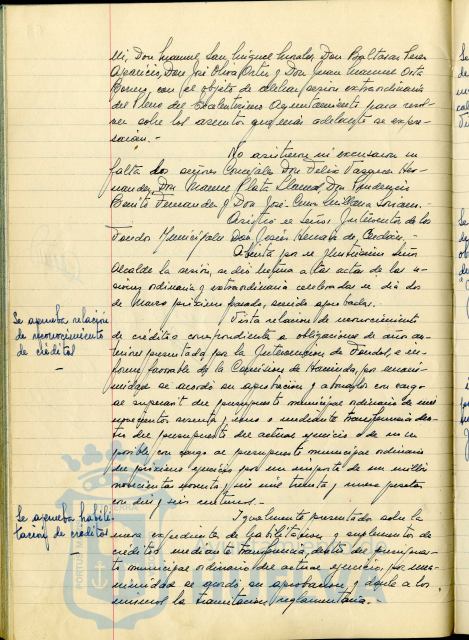 Mi, Don Manuel San Miguel Morales, Don Baltasar Perez
Aparicio, Don José Oliva Ortes y Don Juan Manuel Orta
Borrero, con el objeto de celebrar sesion extraordinaria
del Pleno del Excelentisimo Ayuntamiento para resol-
ver sobre los asuntos que más adelante se expre-
sarán.-
No asistieron ni excusaron su
falta los señores Concejales Don Felix Vazquez Her-
nandez, Don Manuel Plata Llamas, Don Prudencio
Benito Fernandez y Don José Soriano.
Asistio el Señor Interventor de los
Fondos Municipales Don Jesús Hernandez.
Abierta por el Ilustrisimo Señor
Alcalde la sesión, se dió lectura a las actas de las se-
siones ordinaria y extraordinaria celebradas el dia dos
de Marzo próximo pasado, siendo aprobadas.
Vista relacion de reconocimiento
de créditos correspondiente a obligaciones de años an-
teriores presentada por la Intervencion de Fondos, e in-
forme favorable de la Comision de Hacienda, por unani-
midad se acordó su aprobación y abonarlos con cargo
al superavit del presupuesto municipal ordinario de mil
novecientos sesenta y nueve o mediante transferencia den-
tro del presupuesto del actual ejercicio o de no ser
posible, con cargo al presupuesto municipal ordinario
del próximo ejercicio, por un importe de un millón
novecientas noventa y seis mil treinta y nueve pesetas
con diez y seis centimos.-
Igualmente presentado sobre la
mesa expediente de habilitacion y suplementos de
creditos mediante transferencia, dentro del presupues-
to municipal ordinario del actual ejercicio, por una-
nimidad se acordó su aprobacion y darle a los
mismos la tramitacion reglamentaria.-
Se aprueba relación
de reconocimiento
de créditos
Se aprueba habili-
tacion de créditos